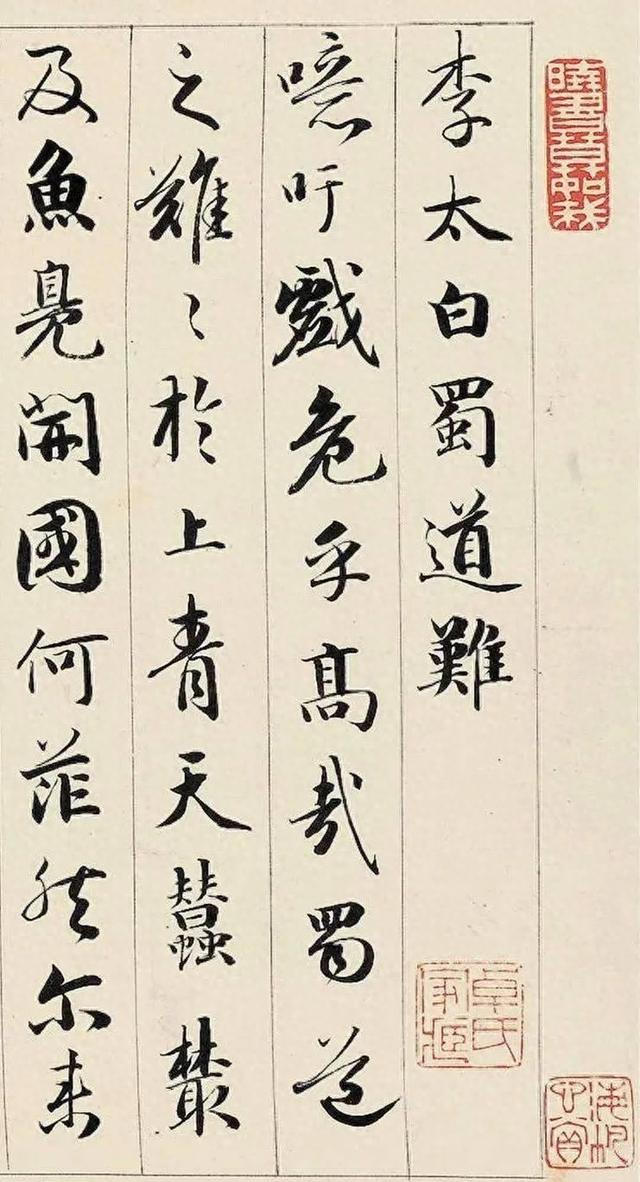 李太白蜀道難
噫吁戲危乎高哉蜀道
之難〻於上青天蠶叢
及魚鳧開國何茫然尔来